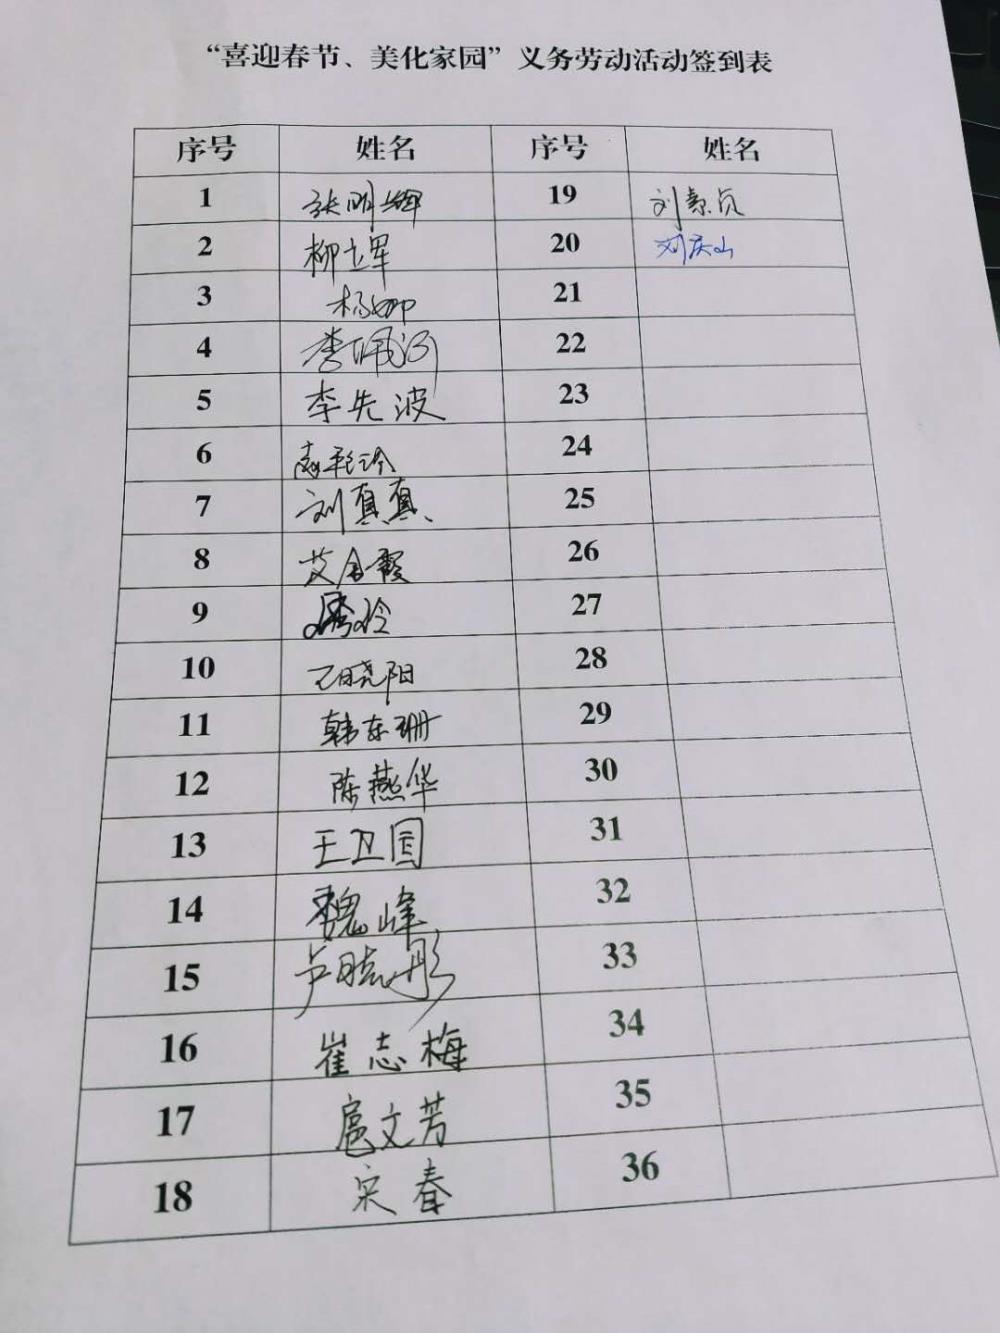 “喜迎春节、美化家园”义务劳动活动签到表
序号 姓名 序号 姓名
1 张明辉 19 刘景贞
2 柳立军 20 刘庆山
3 杨娜 21
4 李佩 22
5 李先波 23
6 24
7 刘真真 25
8 艾金霞 26
9 27
10 王晓阳 28
11 韩东珊 29
12 陈燕华 30
13 王卫国 31
14 魏峰 32
15 卢晓彤 33
16 崔志梅 34
17 扈文芳 35
18 宋春 36